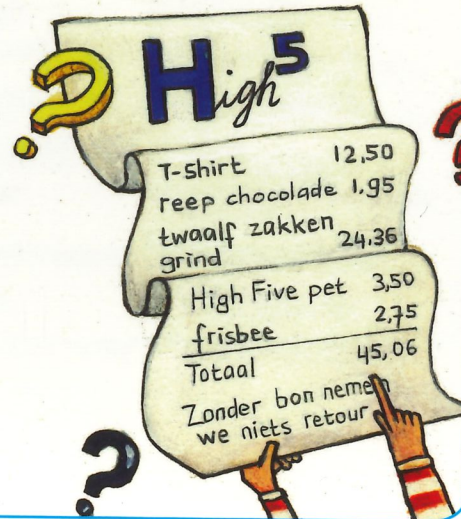 High 5
T-shirt 12,50
reep chocolade 1,95
twaalf zakken
grind 24,36
High Five pet 3,50
frisbee 2,75
Totaal 45,06
Zonder bon nemen
we niets retour